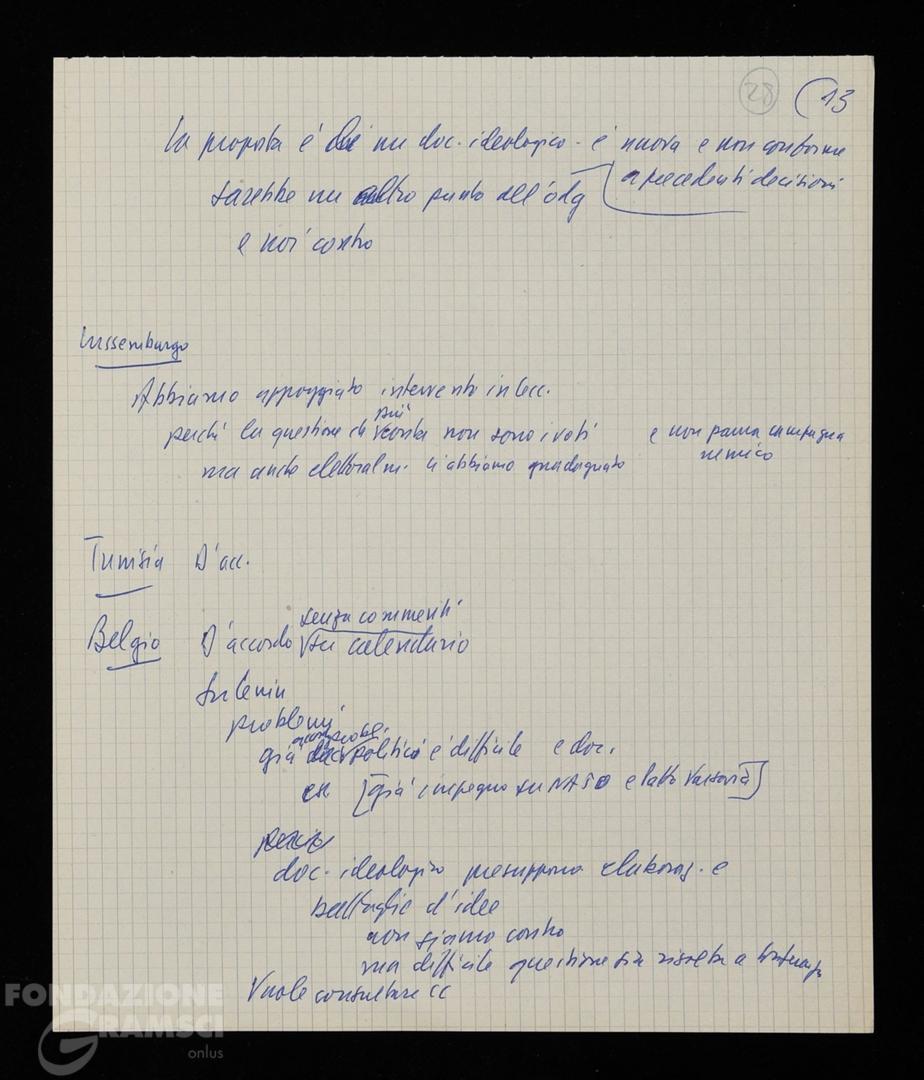 28 (13
La proposta è di un doc. ideologico - è nuova e non conforme
a precedenti decisioni
sarebbe un altro punto dell'odg
e noi contro
Lussemburgo
Abbiamo appoggiato intervento in Cec.
perché la questione di più non sono i voti e non paura campagna
ma anche elettoralm. ci abbiamo guadagnato nemico
Tunisia D'acc.
senza commenti
Belgio D'accordo su calendario
Su Lenin
problemi
già politici è difficile e doc.
es [già impegno su NATO e Patto Varsavia]
perciò
doc. ideologico presuppone elaboraz. e
battaglie d'idee
non siamo contro
ma difficile questione sia risolta a
Vuole consultare CC
FONDAZIONE
GRAMSCI
onlus